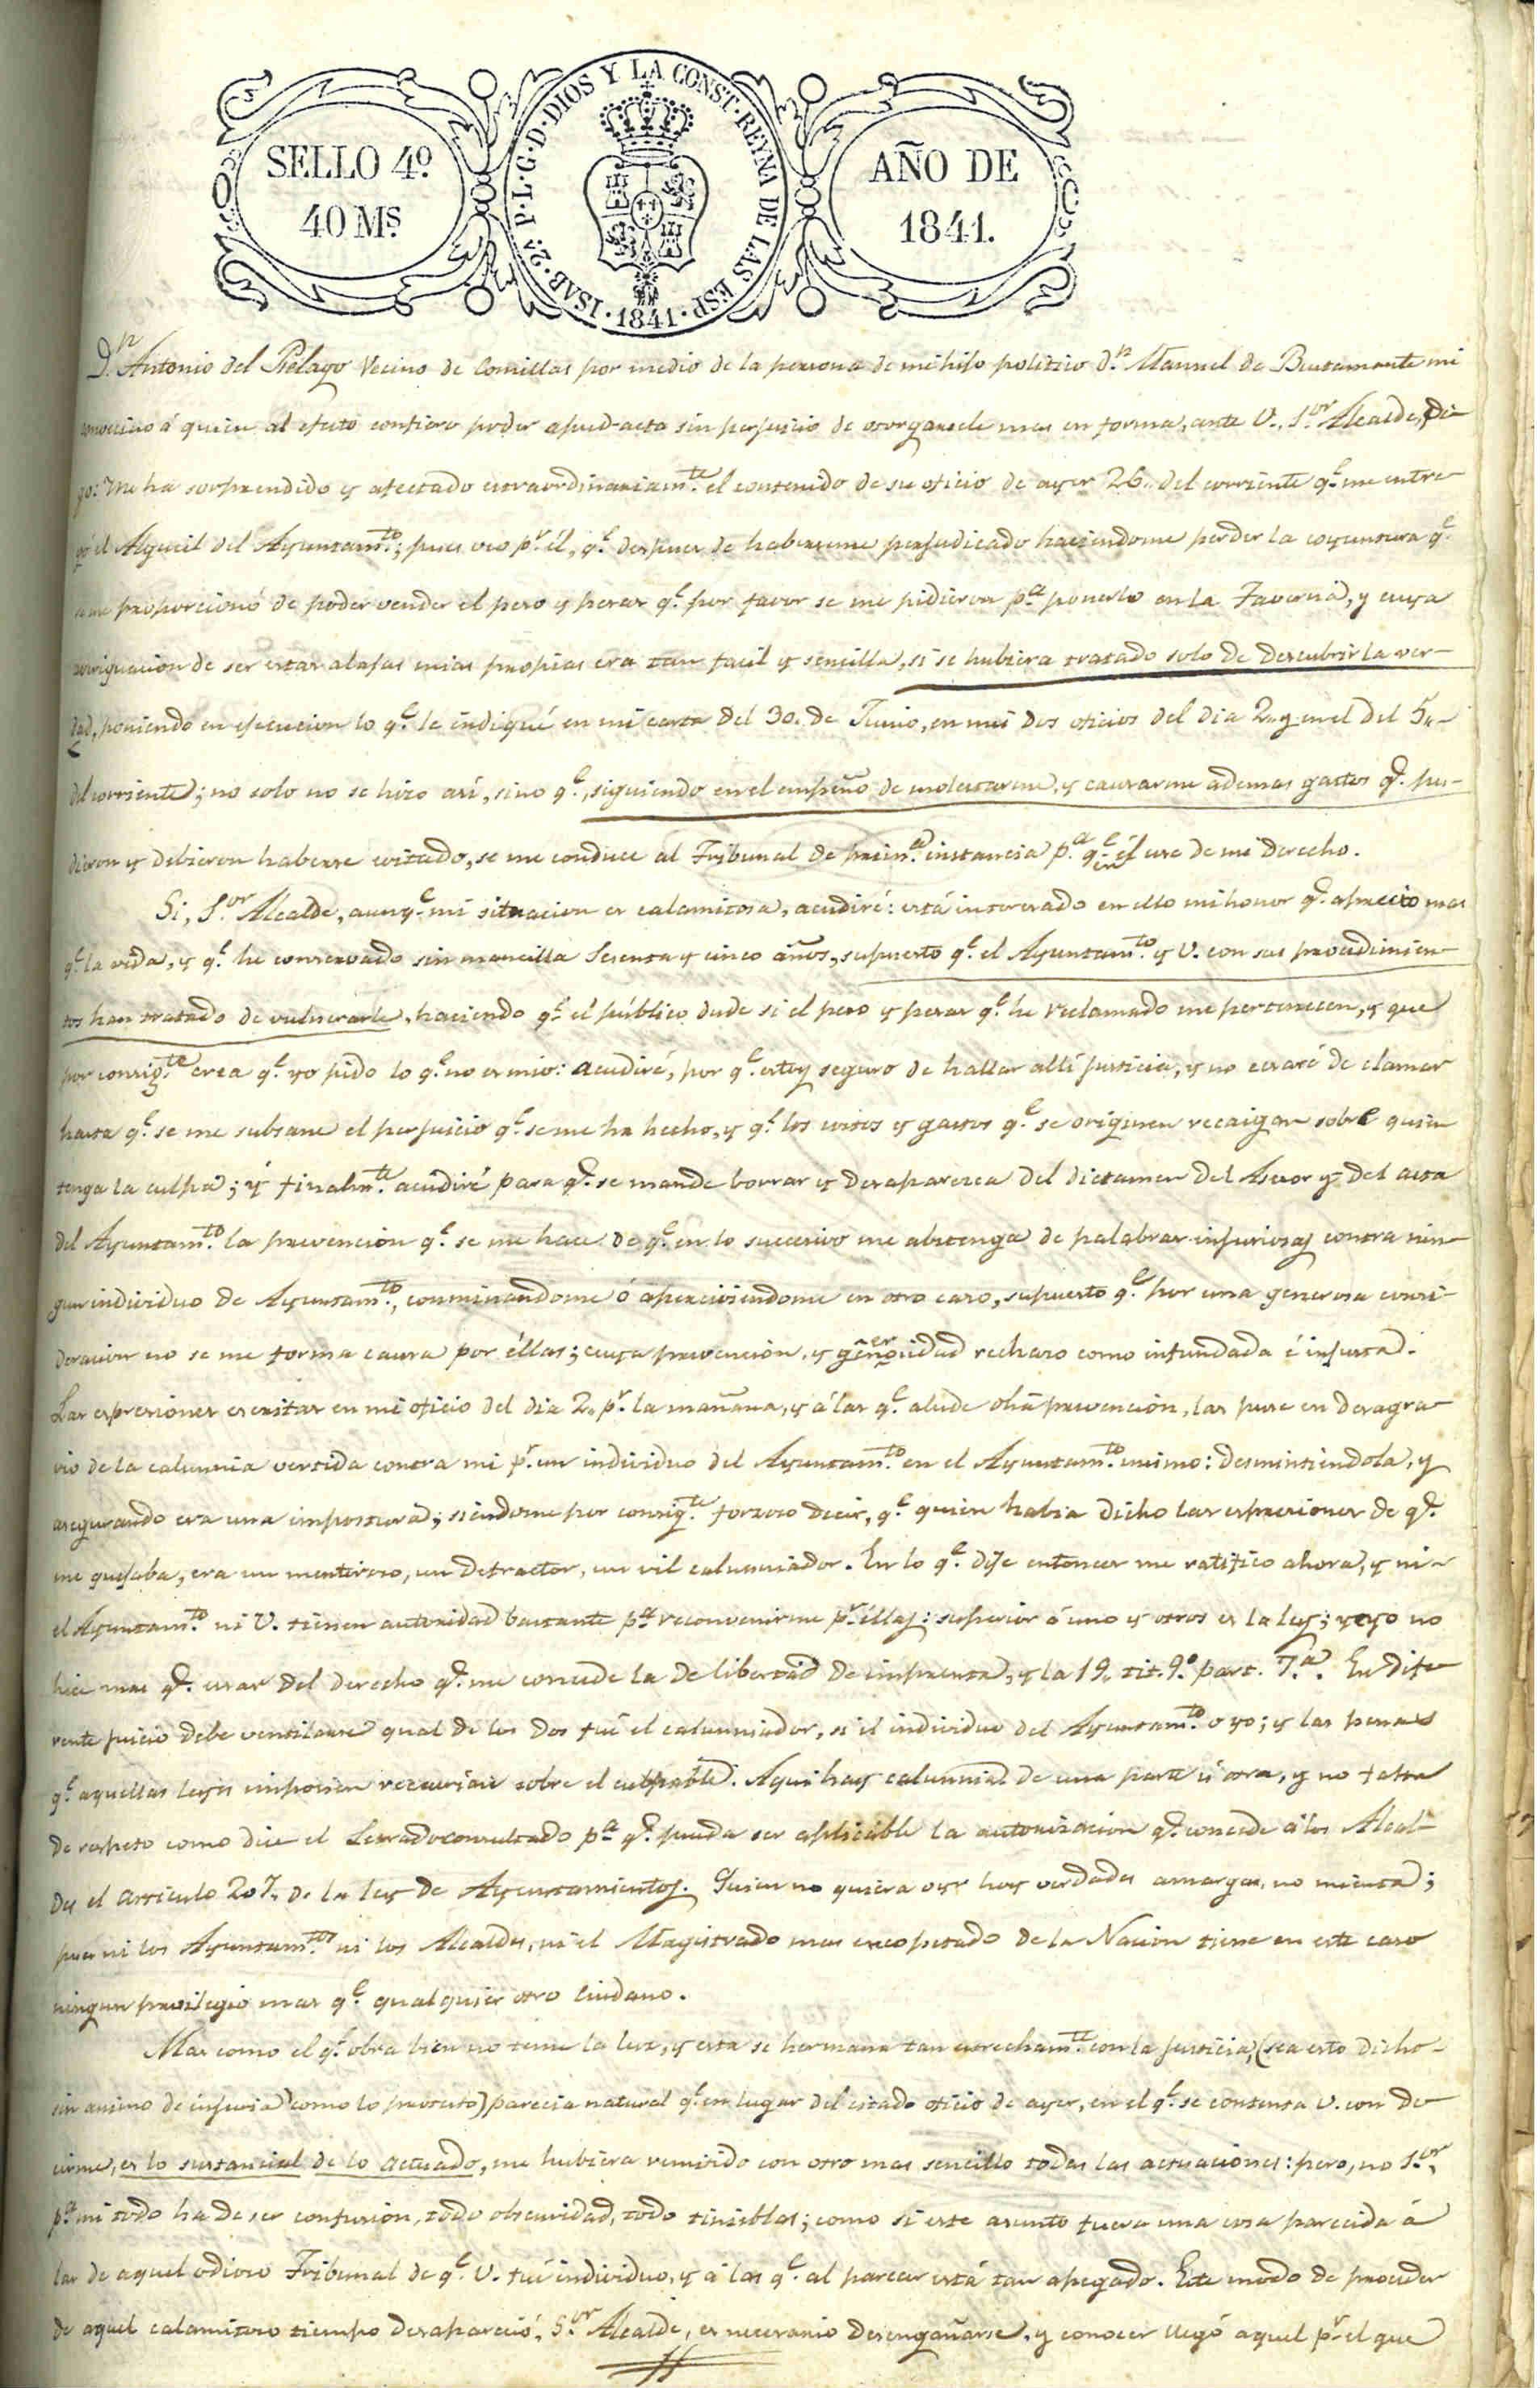 SELLO 4º.
40 Mˢ.
ISAB. 2ª. P. L. G. D. DIOS Y LA CONST. REYNA DE LAS ESP.
1841
AÑO DE
1841.
D.ⁿ Antonio del Piélago Vecino de Comillas por medio de la persona de mi hijo politico d.ⁿ Manuel de Bustamante mi
convecino á quien al efecto confiero poder apud-acta sin perjuicio de otorgarsele mas en forma, ante V., S.ᵒʳ Alcalde, di-
go: Me ha sorprendido y afectado estraordinariam.ᵗᵉ el contenido de su oficio de ayer 26,, del corriente q.ᵉ me entre-
gó el Alguacil del Ayuntam.ᵗᵒ; pues veo p.ʳ él, q.ᵉ despues de haberseme perjudicado haciendome perder la coyuntura q.ᵉ
se me proporcionó de poder vender el peso y pesas q.ᵉ por favor se me pidieron p.ᵃ ponerlo en la Taverna, y cuya
averiguacion de ser estas alajas mias propias era tan facil y sencilla, si se hubiera tratado solo de descubrir la ver-
dad, poniendo en ejecucion lo q.ᵉ le indiqué en mi carta del 30. de Junio, en mis dos oficios del dia 2,, y en el del 5,,-
del corriente; no solo no se hizo asi, sino q.ᵉ, siguiendo en el empeño de molestarme, y causarme ademas gastos q.ᵉ pu-
dieron y debieron haberse evitado, se me conduce al Tribunal de prim.ᵃ instancia p.ᵃ q.ᵉ en él use de mi derecho.
Si, S.ᵒʳ Alcalde, aunq.ᵉ mi situacion es calamitosa, acudiré: está interesado en ello mi honor q.ᵉ aprecio mas
q.ᵉ la vida, y q.ᵉ he conservado sin mancilla sesenta y cinco años, supuesto q.ᵉ el Ayuntam.ᵗᵒ y V. con sus procedimien-
tos han tratado de vulnerarle, haciendo q.ᵉ el público dude si el peso y pesas q.ᵉ he reclamado me pertenecen, y que
por consig.ᵗᵉ crea q.ᵉ yo pido lo q.ᵉ no es mio: acudiré, por q.ᵉ estoy seguro de hallar alli justicia, y no cesaré de clamar
hasta q.ᵉ se me subsane el perjuicio q.ᵉ se me ha hecho, y q.ᵉ los costos y gastos q.ᵉ se originen recaigan sobre quien
tenga la culpa; y finalm.ᵗᵉ acudiré para q.ᵉ se mande borrar y desaparezca del dictamen del Asesor y del acta
del Ayuntam.ᵗᵒ la prevencion q.ᵉ se me hace de q.ᵉ en lo succesivo me abstenga de palabras injuriosas contra nin-
gun individuo de Ayuntam.ᵗᵒ, conminandome ó apercibiendome en otro caso, supuesto q.ᵉ por una generosa consi-
deracion no se me forma causa por éllas; cuya prevencion, y generosidad rechazo como infundada é injusta.
Las espresiones escritas en mi oficio del dia 2,, p.ʳ la mañana, y á las q.ᵉ alude dha prevencion, las puse en desagra-
vio de la calumnia vertida contra mi p.ʳ un individuo del Ayuntam.ᵗᵒ en el Ayuntam.ᵗᵒ mismo: desmintiendola, y
asegurando era una impostura; siendome por consig.ᵗᵉ forzoso decir, q.ᵉ quien habia dicho las espresiones de q.ᵉ
me quejaba, era un mentiroso, un detractor, un vil calumniador. En lo q.ᵉ dije entonces me ratifico ahora, y ni-
el Ayuntam.ᵗᵒ ni V. tienen autoridad bastante p.ᵃ reconvenirme p.ʳ éllas: superior á uno y otros es la ley; y yo no
hice mas q.ᵉ usar del derecho q.ᵉ me concede la de libertad de imprenta, y la 19,, tit. 9.º part. 7.ª. En dife-
rente juicio debe ventilarse qual de los dos fué el calumniador, si el individuo del Ayuntam.ᵗᵒ o yo; y las penas
q.ᵉ aquellas leyes imponen recaerian sobre el culpable. Aqui hay calumnia de una parte ú otra, y no falta
de respeto como dice el Letrado consultado p.ᵃ q.ᵉ pueda ser aplicable la autorizacion q.ᵉ concede á los Alcal-
des el articulo 207,, de la ley de Ayuntamientos. Quien no quiera oyr hoy verdades amargas, no mienta;
pues ni los Ayuntam.ᵗᵒˢ ni los Alcaldes, ni el Magistrado mas encopetado de la Nacion tiene en este caso
ningun previlegio mas q.ᵉ qualquier otro Ciudano.
Mas como el q.ᵉ obra bien no teme la luz, y esta se hermana tan estrecham.ᵗᵉ con la justicia, (sea esto dicho-
sin animo de injuria como lo protesto) parecia natural q.ᵉ en lugar del citado oficio de ayer, en el q.ᵉ se contenta V. con de-
cirme, es lo sustancial de lo actuado, me hubiera remitido con otro mas sencillo todas las actuaciones: pero, no S.ᵒʳ,
p.ᵃ mi todo ha de ser confusion, todo obscuridad, todo tinieblas; como si este asunto fuera una cosa parecida á
las de aquel odioso Tribunal de q.ᵉ V. fué individuo, y á las q.ᵉ al parecer está tan apegado. Este modo de proceder
de aquel calamitoso tiempo desapareció, S.ᵒʳ Alcalde, es necesario desengañarse, y conocer llegó aquel p.ʳ el que